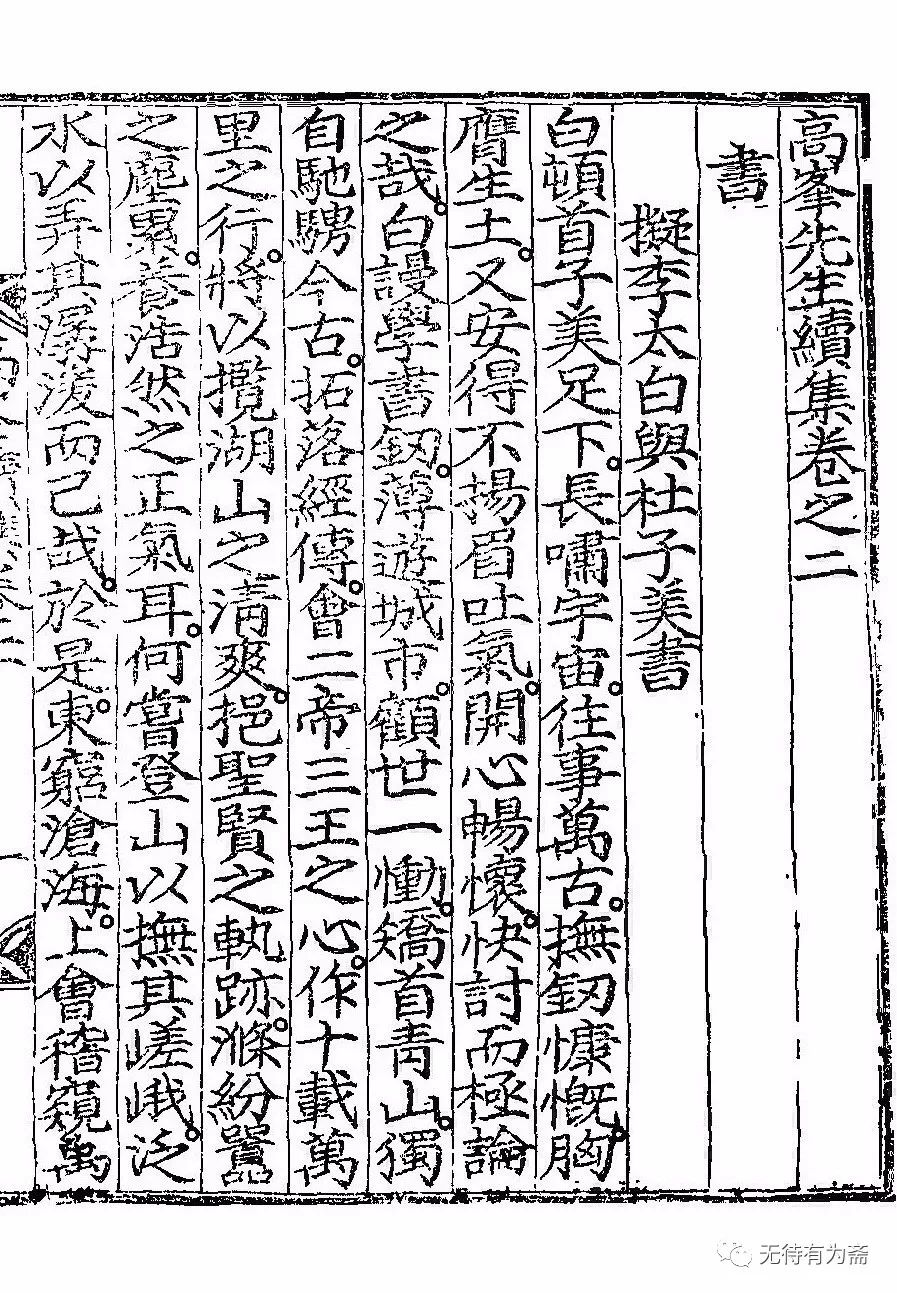 高峯先生續集卷之二
書
擬李太白與杜子美書
白頓首子美足下。長嘯宇宙。往事萬古。撫釼慷慨。胸
膺生土。又安得不揚眉吐氣。開心暢懷。快討而極論
之哉。白謾學書釼。薄遊城市。顧世一慟。矯首靑山。獨
自馳騁今古。拓落經傳。會二帝三王之心。作十載萬
里之行。將以攬湖山之淸爽。挹聖賢之軌跡。滌紛囂
之塵累。養浩然之正氣耳。何嘗登山以撫其嵯峨。泛
水以弄其潺湲而已哉。於是。東窮滄海。上會稽窺禹
无待有为斋